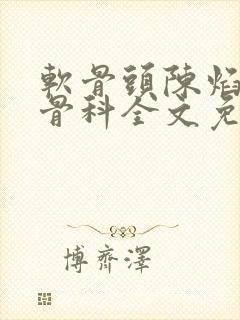 軟骨頭陳焰
骨科全文免
博齊澤